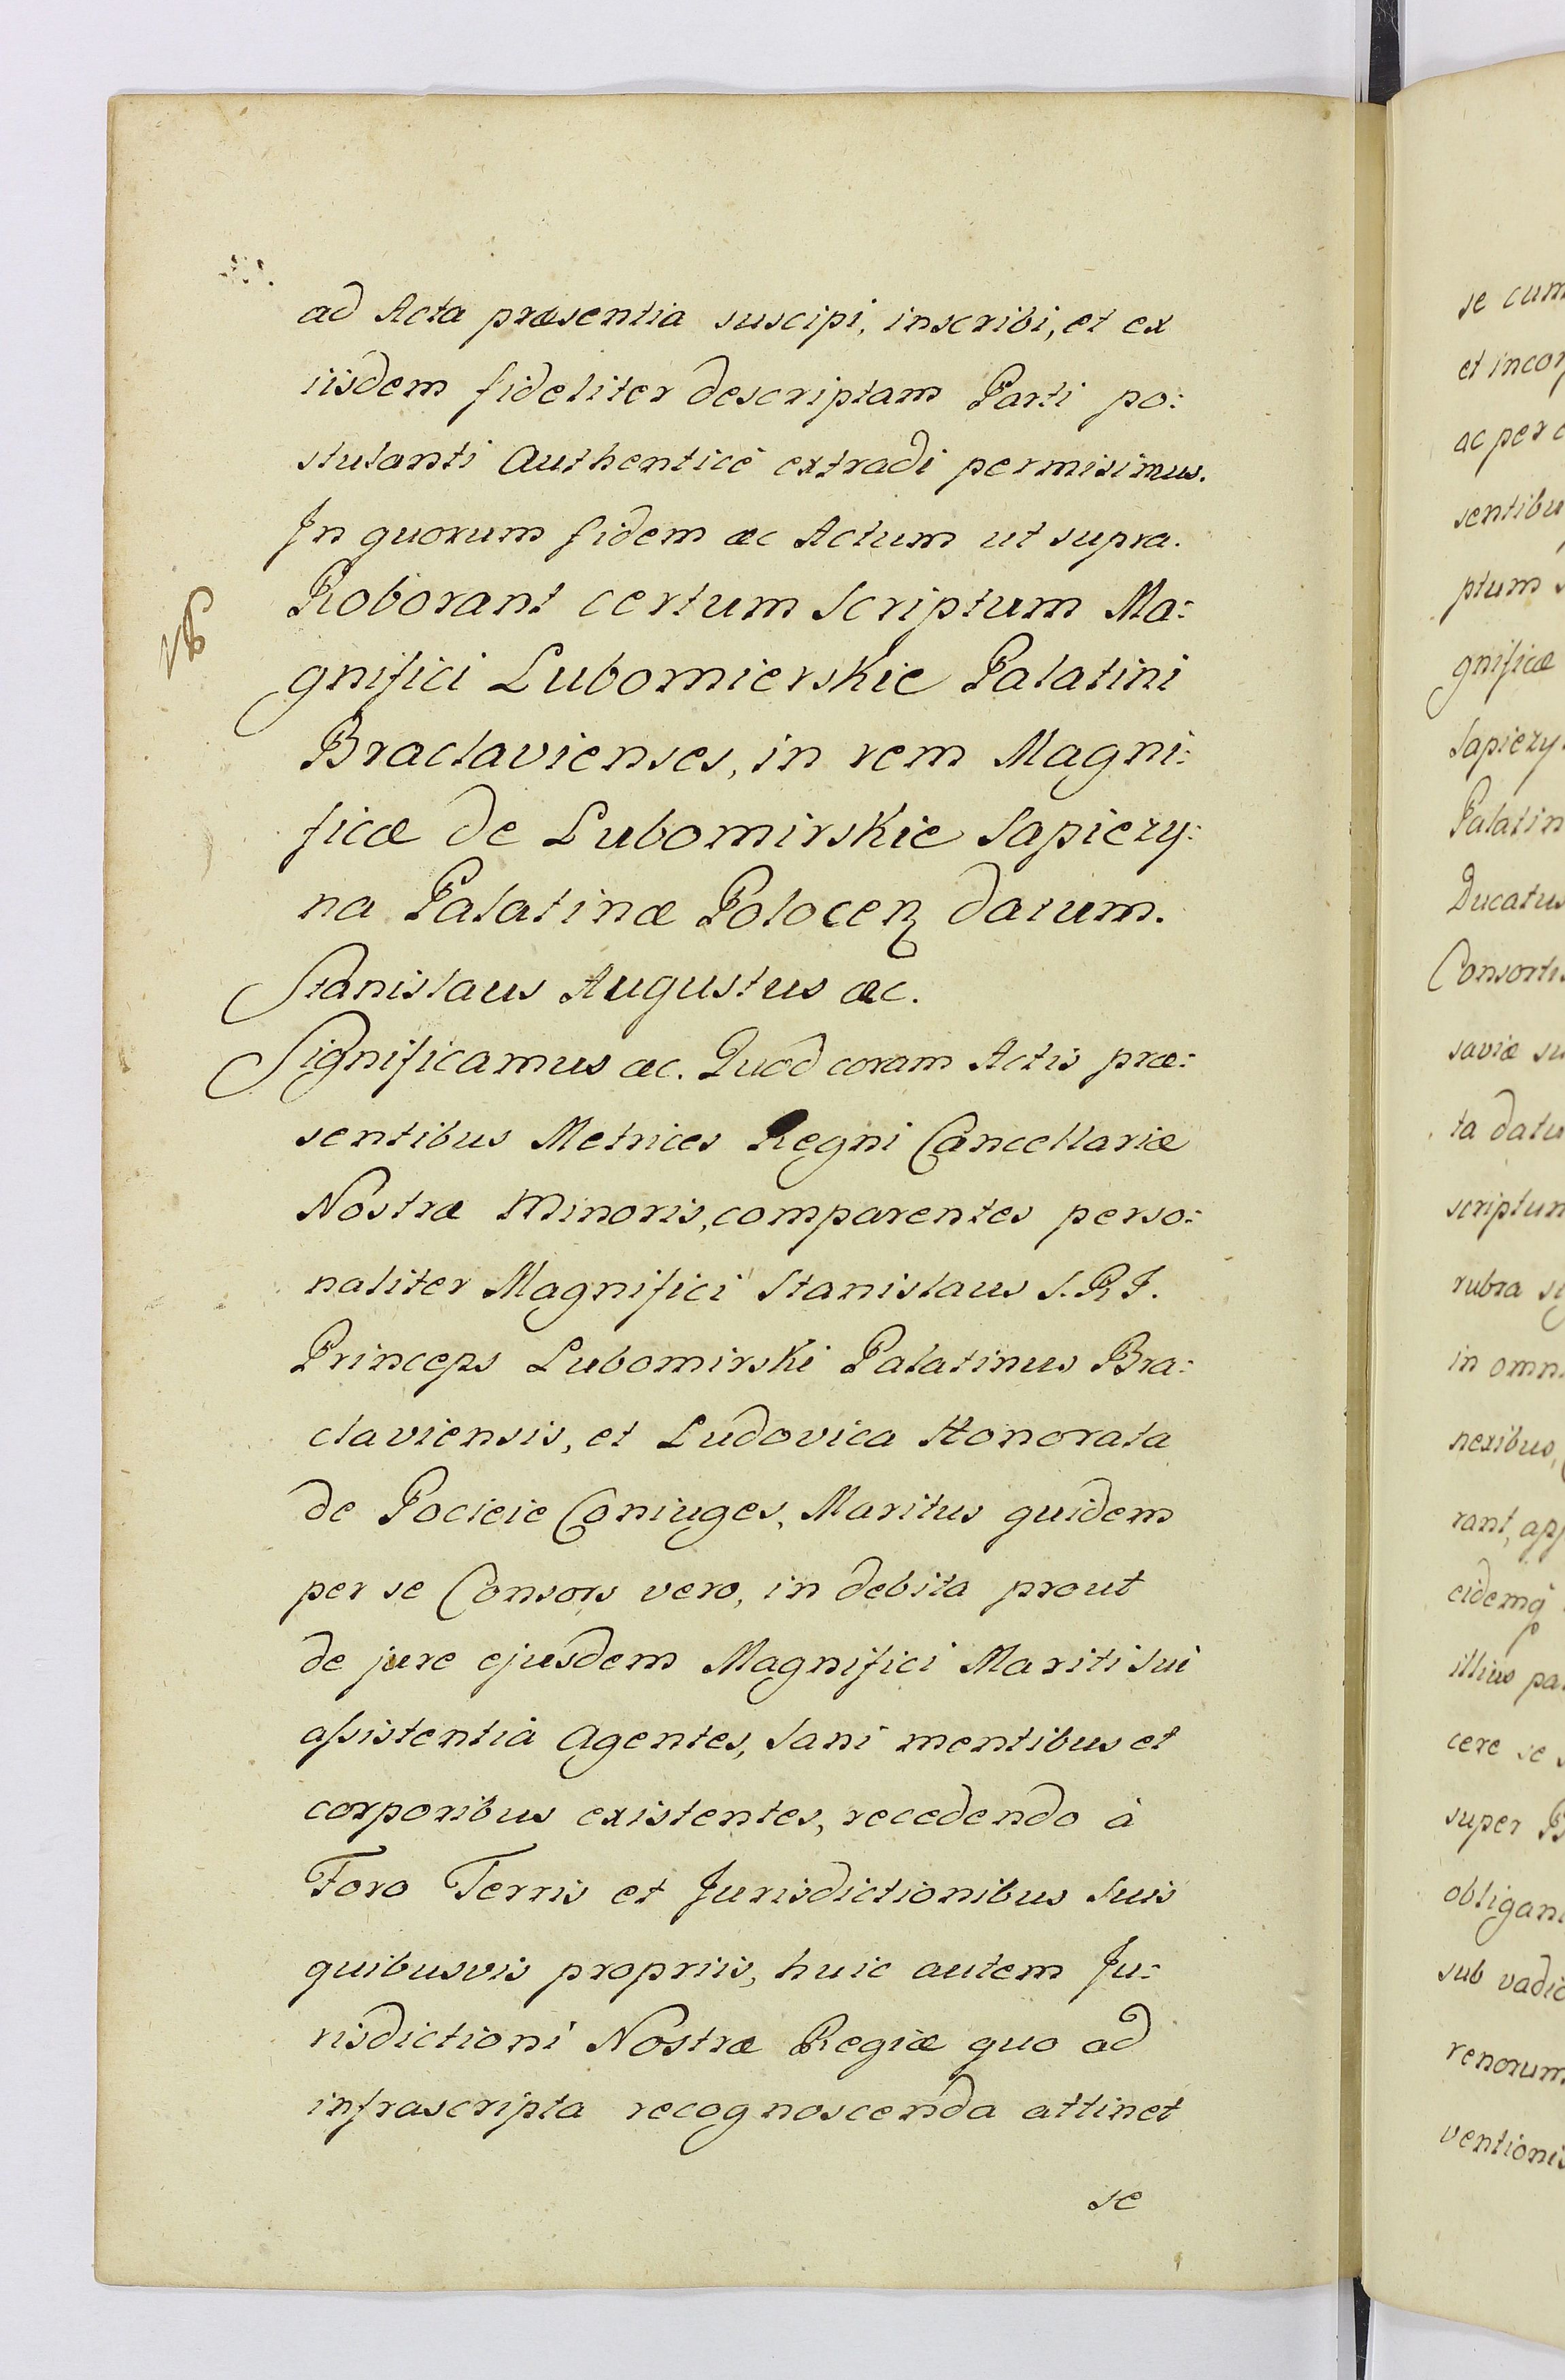 ad Acta præsentia suscipi, inscribi, et ex
iisdem fideliter descriptam Parti po:
stulanti Authenticè extradi permisimus.
In quorum fidem æc Actum ut supra.
Roborant certum Scriptum Ma:
gnifici Lubomierskie Palatini
Braclavienses, in rem Magni:
ficæ de Lubomirskie Sapiezy:
na Palatinæ Polocen datum.
Stanislaus Augustus æc.
Significamus æc. Quod coram Actis præ:
sentibus Metrices Regni Cancellariæ
Nostræ Minoris, comparentes perso:
naliter Magnifici Stanislaus S.R.I.
Princeps Lubomirski Palatinus Bra:
claviensis, et Ludovica Honorata
de Pocieie Coniuges, Maritus quidem
per se Consors vero, in debita prout
de jure ejusdem Magnifici Mariti sui
assistentià Agentes, Sani mentibus et
corporibus existentes, recedendo à
Foro Terris et Jurisdictionibus Suis
quibusvis propriis, huic autem Ju:
risdictioni Nostræ Regiæ quo ad
infrascripta recognoscenda attinet
se
se cum
et incor
ac per
sentibu
ptum
gnificæ
Sapiezy
Palatin
Ducatus
Consortis
saviæ su
ta datu
scriptum
rubra si
in omn
nexibus,
rant, app
eidemq
illius pa
cere se
super B
obligan
sub vadi
renorum
ventionis